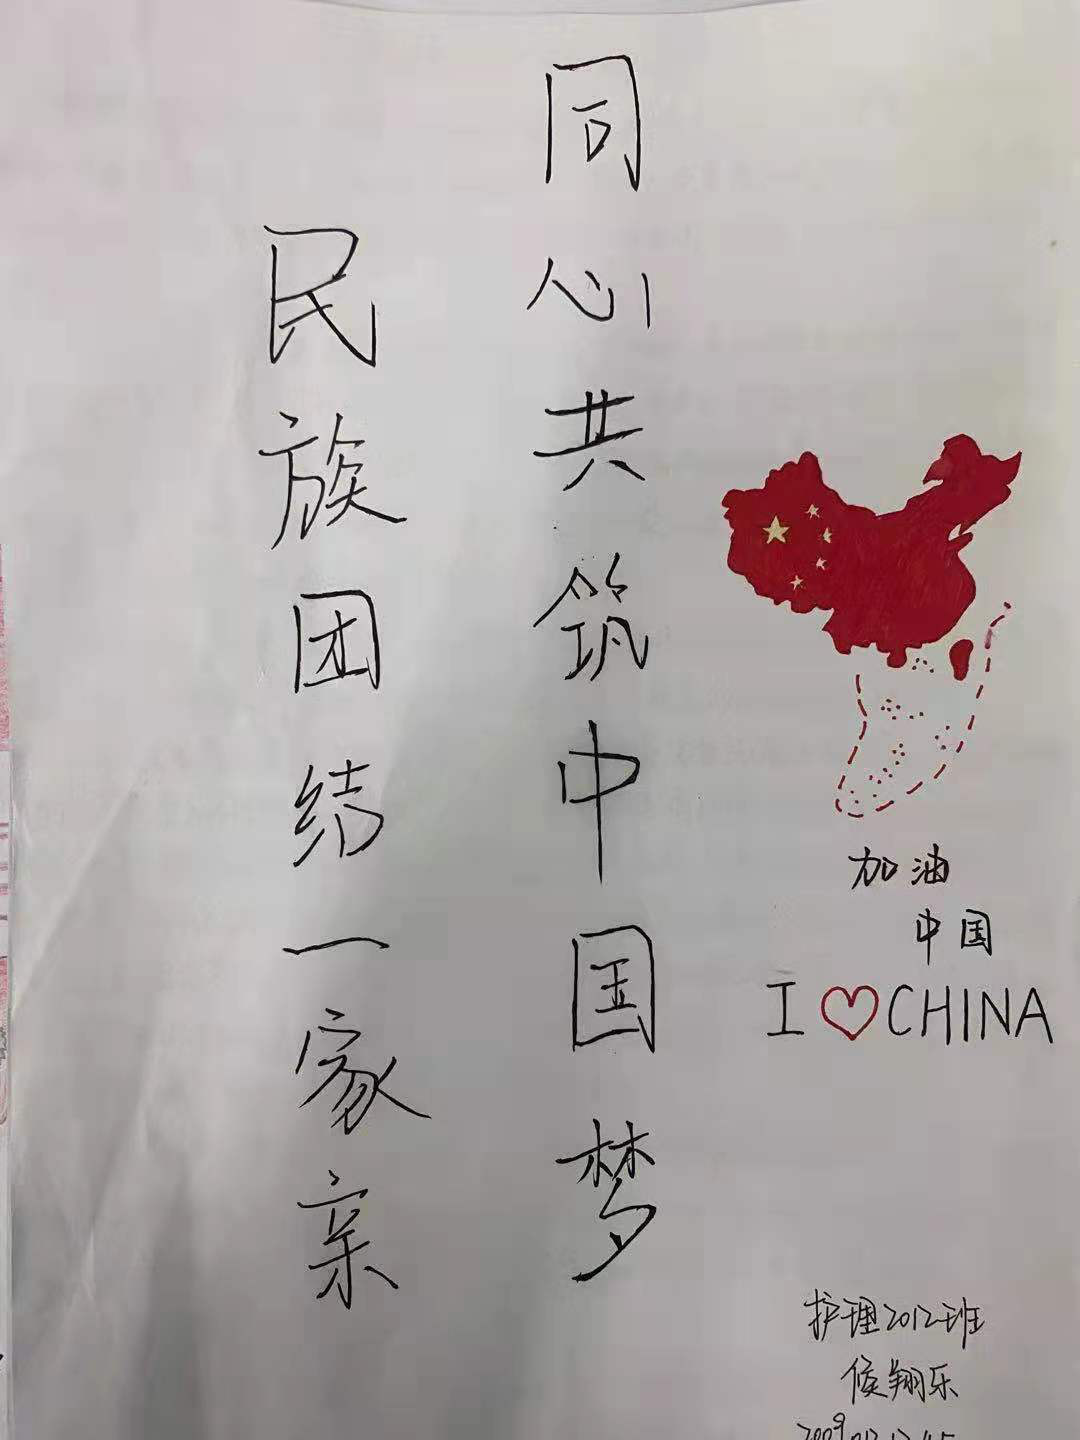 同心共筑中国梦
民族团结一家亲
加油
中国
I ♡ CHINA
护理2012班
侯翔乐